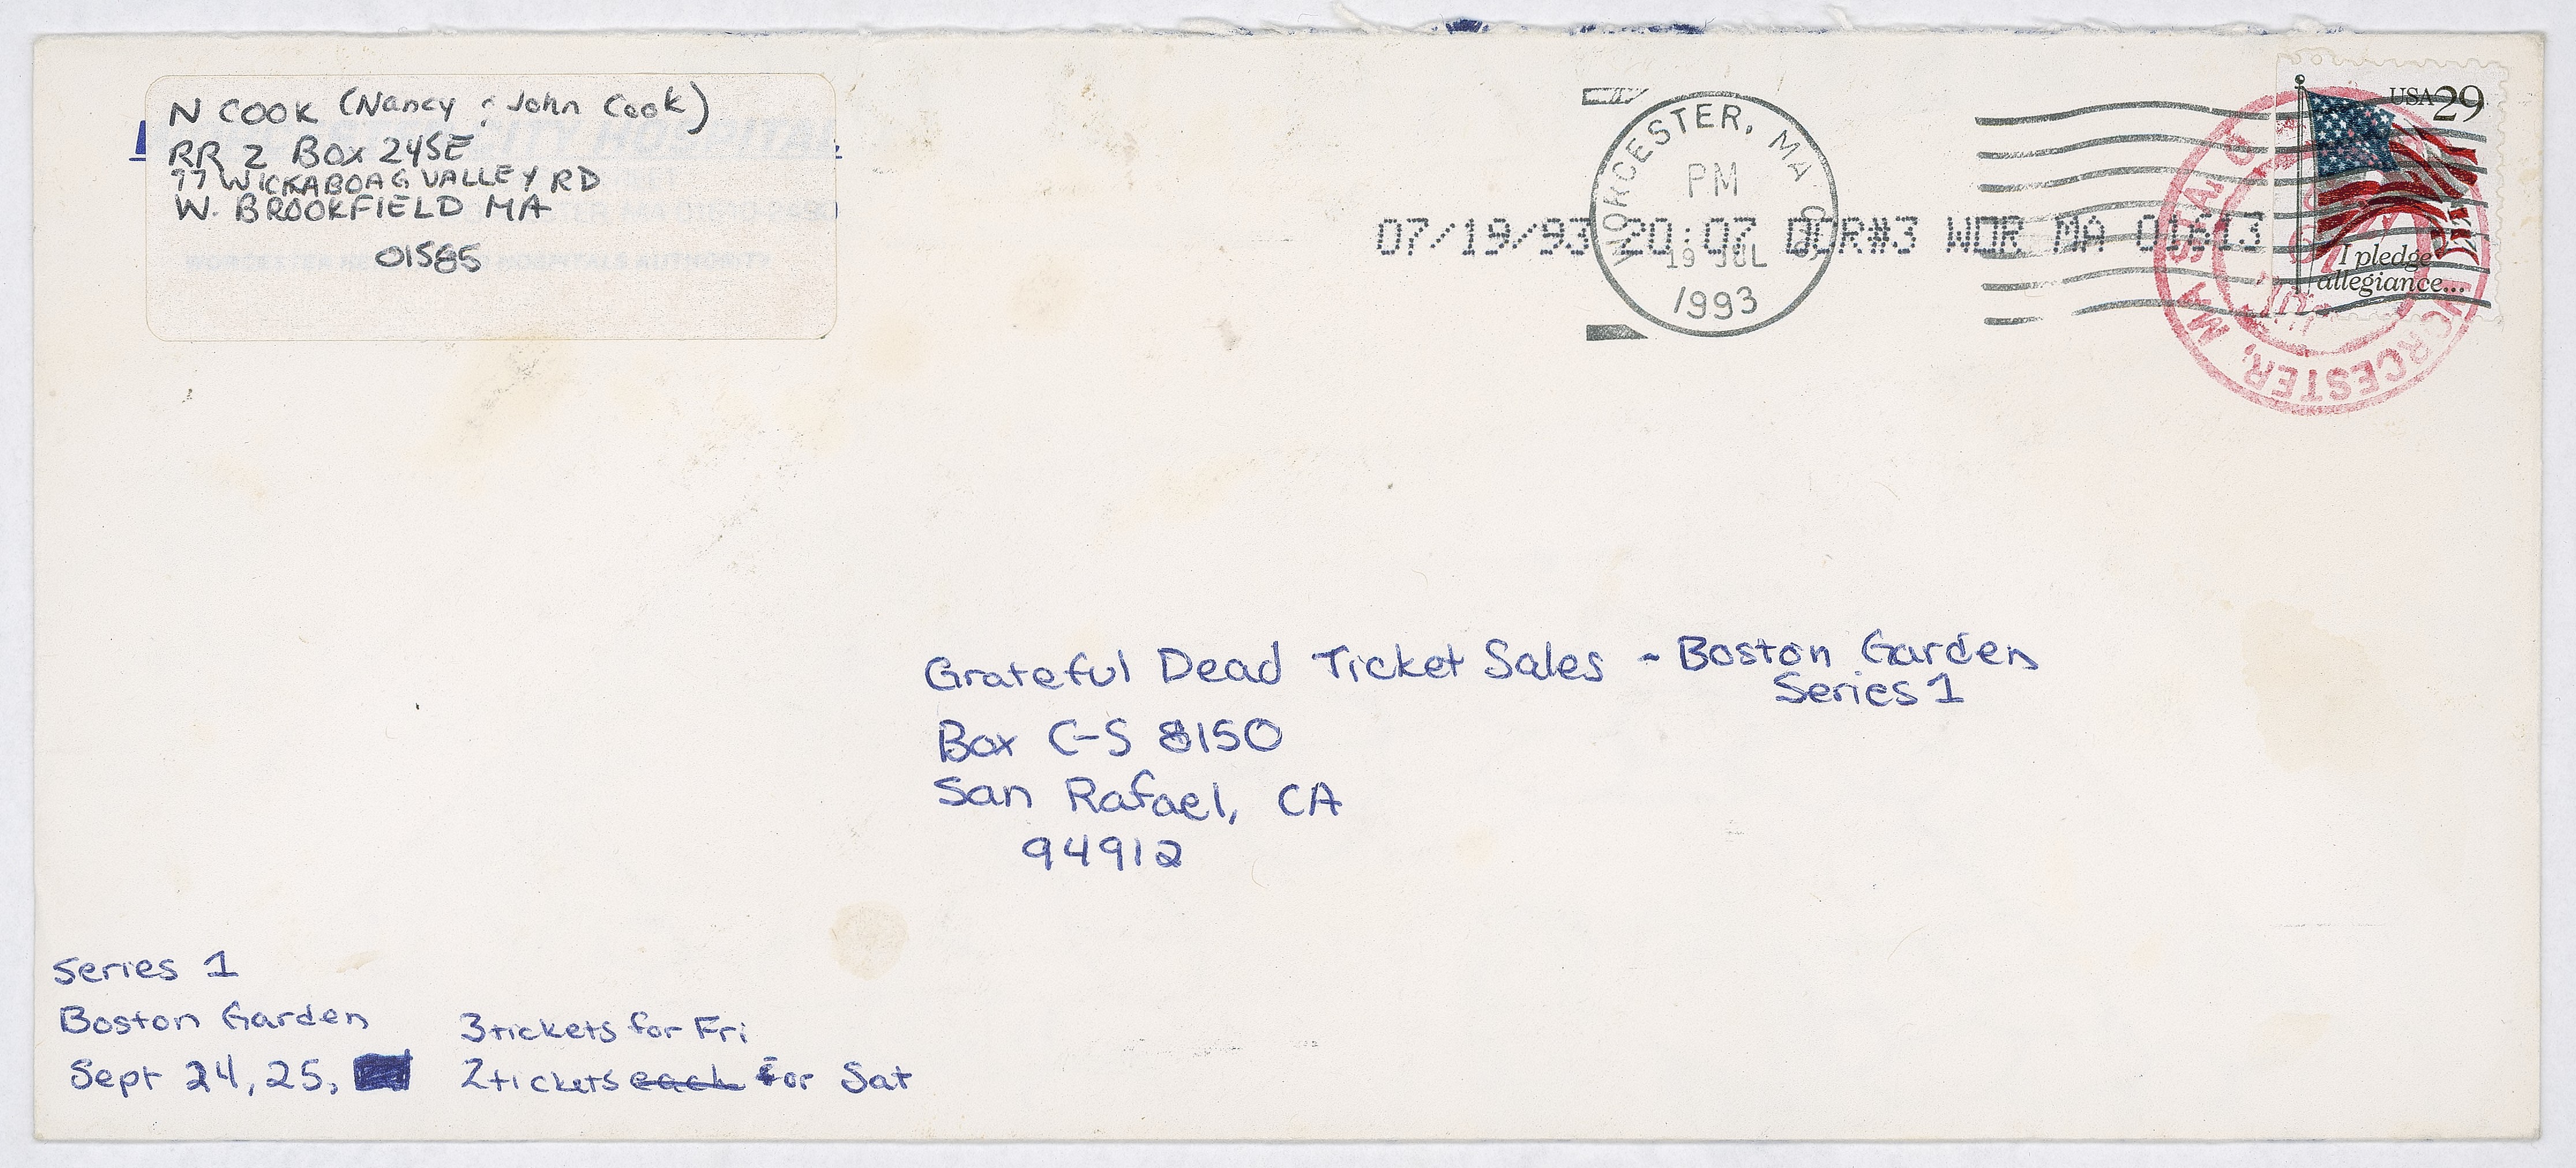 N COOK (Nancy & John Cook)
RR 2 Box 245E
77 WICKABOAG VALLEY RD
W. BROOKFIELD MA
01585
WORCESTER, MA
PM
19 JUL
1993
07/19/93 20:07 BCR#3 WOR MA 01613
USA 29
I pledge
allegiance...
WORCESTER, MA
Grateful Dead Ticket Sales - Boston Garden
Series 1
Box C-S 8150
San Rafael, CA
94912
Series 1
Boston Garden
Sept 24, 25,
3 tickets for Fri
2 tickets each for Sat